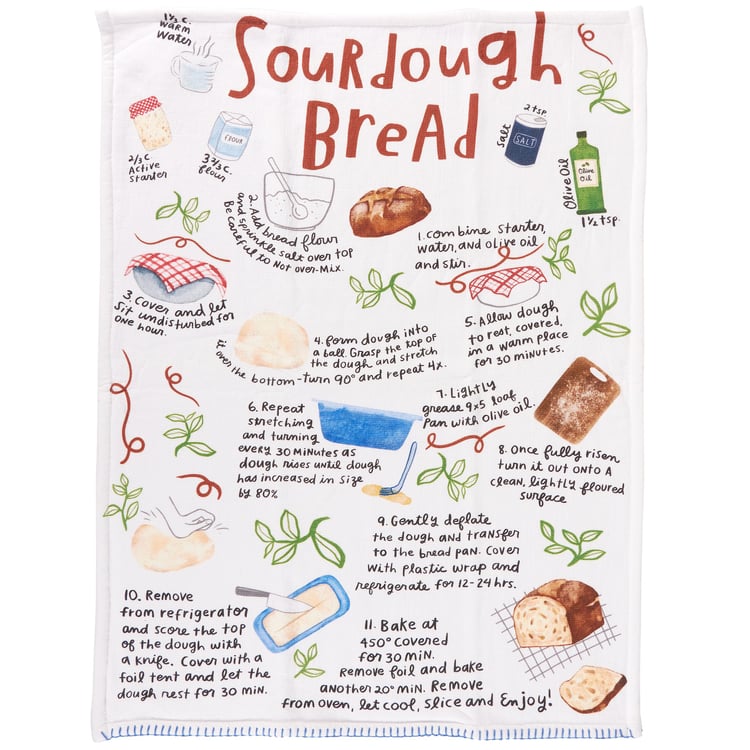 Sourdough
Bread
1 1/3 c.
warm
water
2/3 c.
Active
starter
3 2/3 c.
flour
FLOUR
salt
2 tsp
SALT
Olive Oil
Olive
Oil
1 1/2 tsp.
1. Combine starter,
water, and olive oil
and stir.
2. Add bread flour
and sprinkle salt over top
Be careful to Not over-Mix.
3. Cover and let
sit undisturbed for
one hour.
4. form dough into
a ball. Grasp the top of
the dough and stretch
it over the bottom-turn 90° and repeat 4x.
5. Allow dough
to rest, covered,
in a warm place
for 30 minutes.
6. Repeat
stretching
and turning
every 30 Minutes as
dough rises until dough
has increased in size
by 80%
7. Lightly
grease 9x5 loaf
pan with olive oil.
8. Once fully risen
turn it out onto A
clean, lightly floured
surface
9. Gently deflate
the dough and transfer
to the bread pan. Cover
with plastic wrap and
refrigerate for 12-24 hrs.
10. Remove
from refrigerator
and score the top
of the dough with
a knife. Cover with a
foil tent and let the
dough rest for 30 min.
11. Bake at
450° covered
for 30 min.
Remove foil and bake
another 20° min. Remove
from oven, let cool, slice and Enjoy!